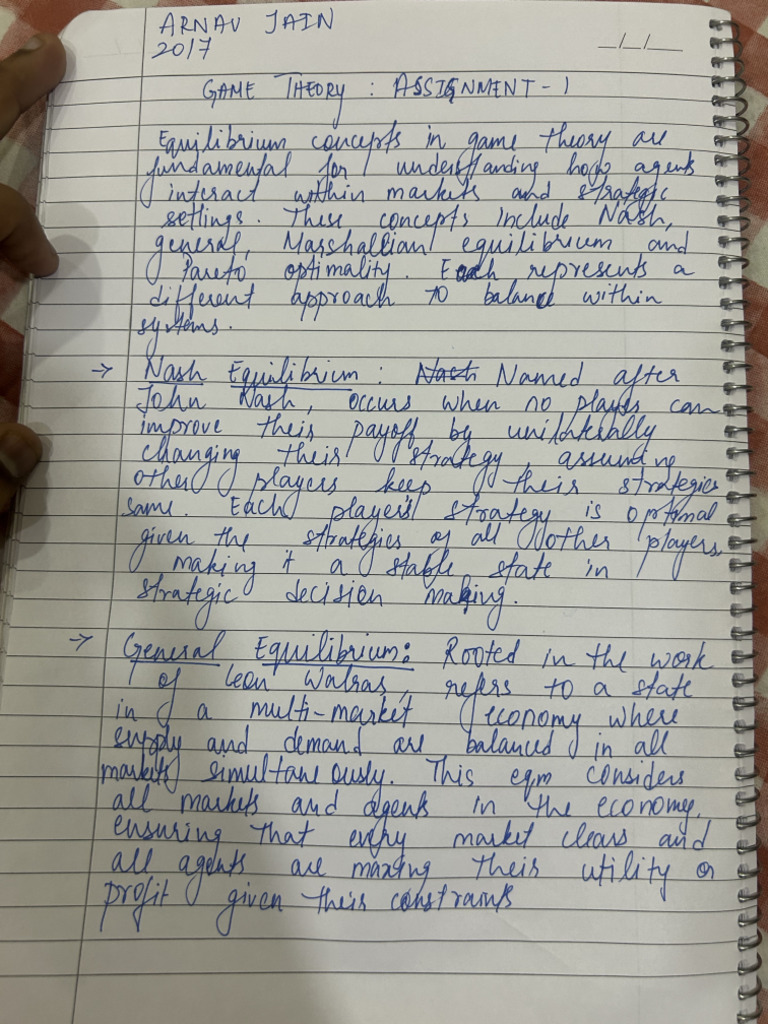 ARNAV JAIN
2017
__/__/__
GAME THEORY : ASSIGNMENT - 1
Equilibrium concepts in game theory are
fundamental for understanding how agents
interact within markets and strategic
settings. These concepts include Nash,
general, Marshallian equilibrium and
Pareto optimality. Each represents a
different approach to balance within
systems.
→ Nash Equilibrium : Nash Named after
John Nash, occurs when no player can
improve their payoff by unilaterally
changing their strategy, assuming
other players keep their strategies
same. Each player's strategy is optimal
given the strategies of all other players,
making it a stable state in
strategic decision making.
→ General Equilibrium: Rooted in the work
of Leon Walras, refers to a state
in a multi-market economy where
supply and demand are balanced in all
markets simultaneously. This eqm considers
all markets and agents in the economy,
ensuring that every market clears and
all agents are maxing their utility or
profit given their constraints